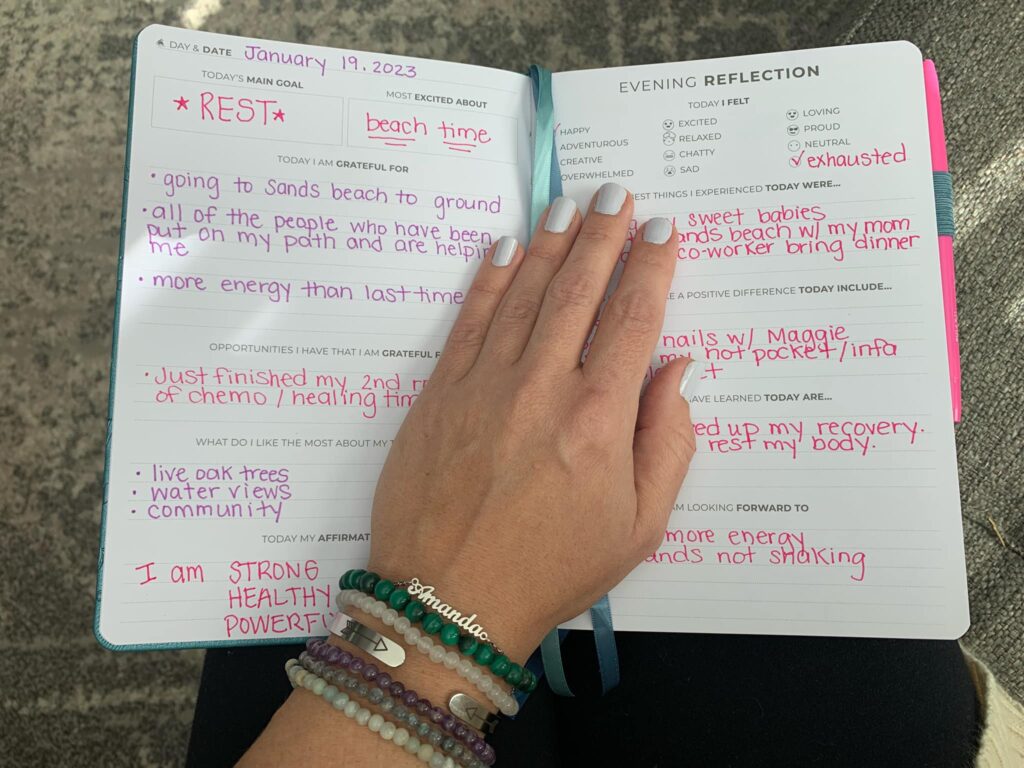 DAY & DATE January 19, 2023
TODAY'S MAIN GOAL
*REST*
MOST EXCITED ABOUT
beach time
TODAY I AM GRATEFUL FOR
• going to Sands beach to ground
• all of the people who have been
put on my path and are helping
me
• more energy than last time
OPPORTUNITIES I HAVE THAT I AM GRATEFUL
• Just finished my 2nd
of chemo / healing
WHAT DO I LIKE THE MOST ABOUT MY
• live oak trees
• water views
• community
TODAY MY
I am STRONG
HEALTHY
POWERFUL
EVENING REFLECTION
TODAY I FELT
HAPPY
ADVENTUROUS
CREATIVE
OVERWHELMED
EXCITED
RELAXED
CHATTY
SAD
LOVING
PROUD
NEUTRAL
✓exhausted
BEST THINGS I EXPERIENCED TODAY WERE...
my sweet babies
sands beach w/ my mom
co-worker bring dinner
A POSITIVE DIFFERENCE TODAY INCLUDE...
nails w/ Maggie
my hot pocket/infa
HAVE LEARNED TODAY ARE...
up my recovery.
rest my body.
AM LOOKING FORWARD TO
more energy
hands not shaking
Amanda